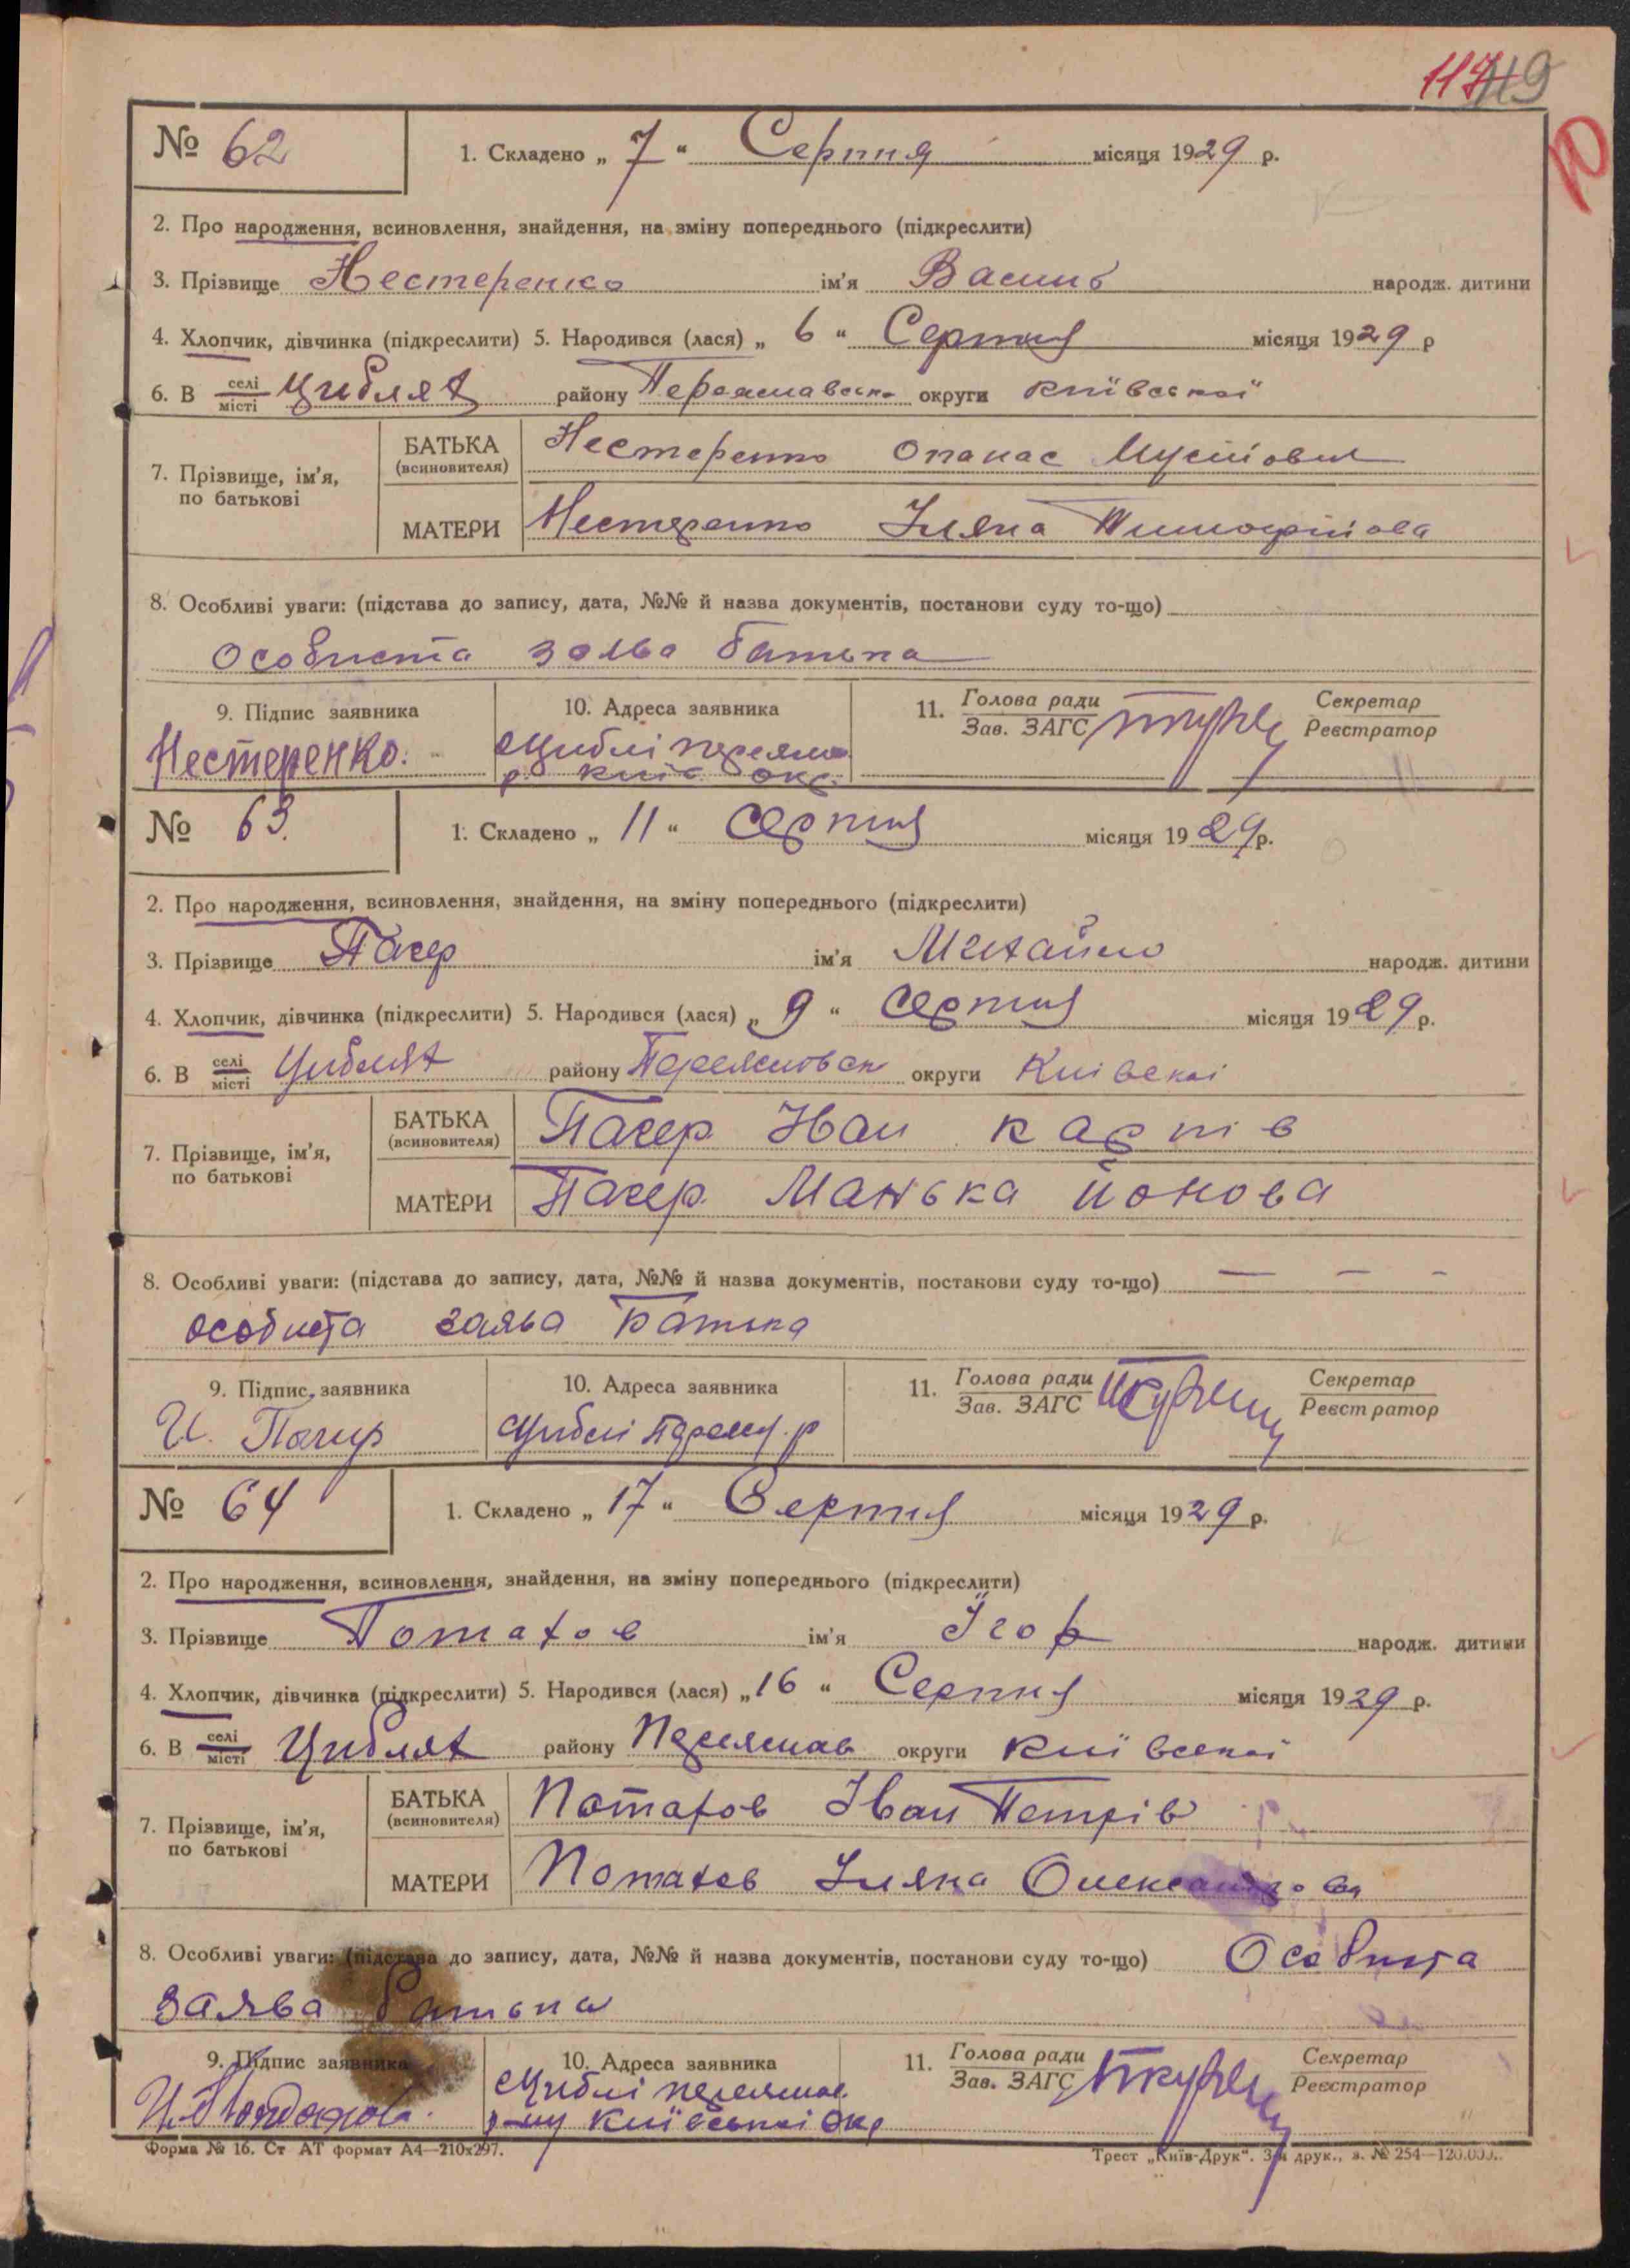 117 119
№ 62 1. Складено „ 7 “ Серпня місяця 1929 р.
2. Про народження, всиновлення, знайдення, на зміну попереднього (підкреслити)
3. Прізвище Нестеренко ім'я Василь народж. дитини
4. Хлопчик, дівчинка (підкреслити) 5. Народився (лася) „ 6 “ Серпня місяця 1929 р
6. В селі місті Циблях району Переяславськ. округи Київської
7. Прізвище, ім'я, по батькові БАТЬКА (всиновителя) Нестеренко Опанас Мусійович
МАТЕРИ Нестеренко Уляна Тимофійова
8. Особливі уваги: (підстава до запису, дата, №№ й назва документів, постанови суду то-що)
Особиста заява батька
9. Підпис заявника 10. Адреса заявника 11. Голова ради Зав. ЗАГС Секретар Реєстратор
Нестеренко. Циблі переясл.
р. Київ окр.
№ 63. 1. Складено „ 11 “ серпня місяця 1929 р.
2. Про народження, всиновлення, знайдення, на зміну попереднього (підкреслити)
3. Прізвище Пачер ім'я Михайло народж. дитини
4. Хлопчик, дівчинка (підкреслити) 5. Народився (лася) „ 9 “ серпня місяця 1929 р.
6. В селі місті Циблях району Переяславськ округи Київскої
7. Прізвище, ім'я, по батькові БАТЬКА (всиновителя) Пачер Іван Карпів
МАТЕРИ Пачер Манька Йонова
8. Особливі уваги: (підстава до запису, дата, №№ й назва документів, постанови суду то-що) — — –
особиста заява Батька
9. Підпис заявника 10. Адреса заявника 11. Голова ради Зав. ЗАГС Секретар Реєстратор
И. Пачир Циблі Переясл. р
№ 64 1. Складено „ 17 “ Серпня місяця 1929 р.
2. Про народження, всиновлення, знайдення, на зміну попереднього (підкреслити)
3. Прізвище Потахов ім'я Ігор народж. дитини
4. Хлопчик, дівчинка (підкреслити) 5. Народився (лася) „ 16 “ Серпня місяця 1929 р.
6. В селі місті Циблях району Переяслав округи Київської
7. Прізвище, ім'я, по батькові БАТЬКА (всиновителя) Потахов Іван Петрів
МАТЕРИ Потахов Уляна Олександрова
8. Особливі уваги: (підстава до запису, дата, №№ й назва документів, постанови суду то-що) Особиста
заява батька
9. Підпис заявника 10. Адреса заявника 11. Голова ради Зав. ЗАГС Секретар Реєстратор
Циблі переяслав.
р-ну Київської окр
Форма № 16. Ст АТ формат А4—210x297. Трест „Київ-Друк“. 3-я друк., з. № 254—120.000.